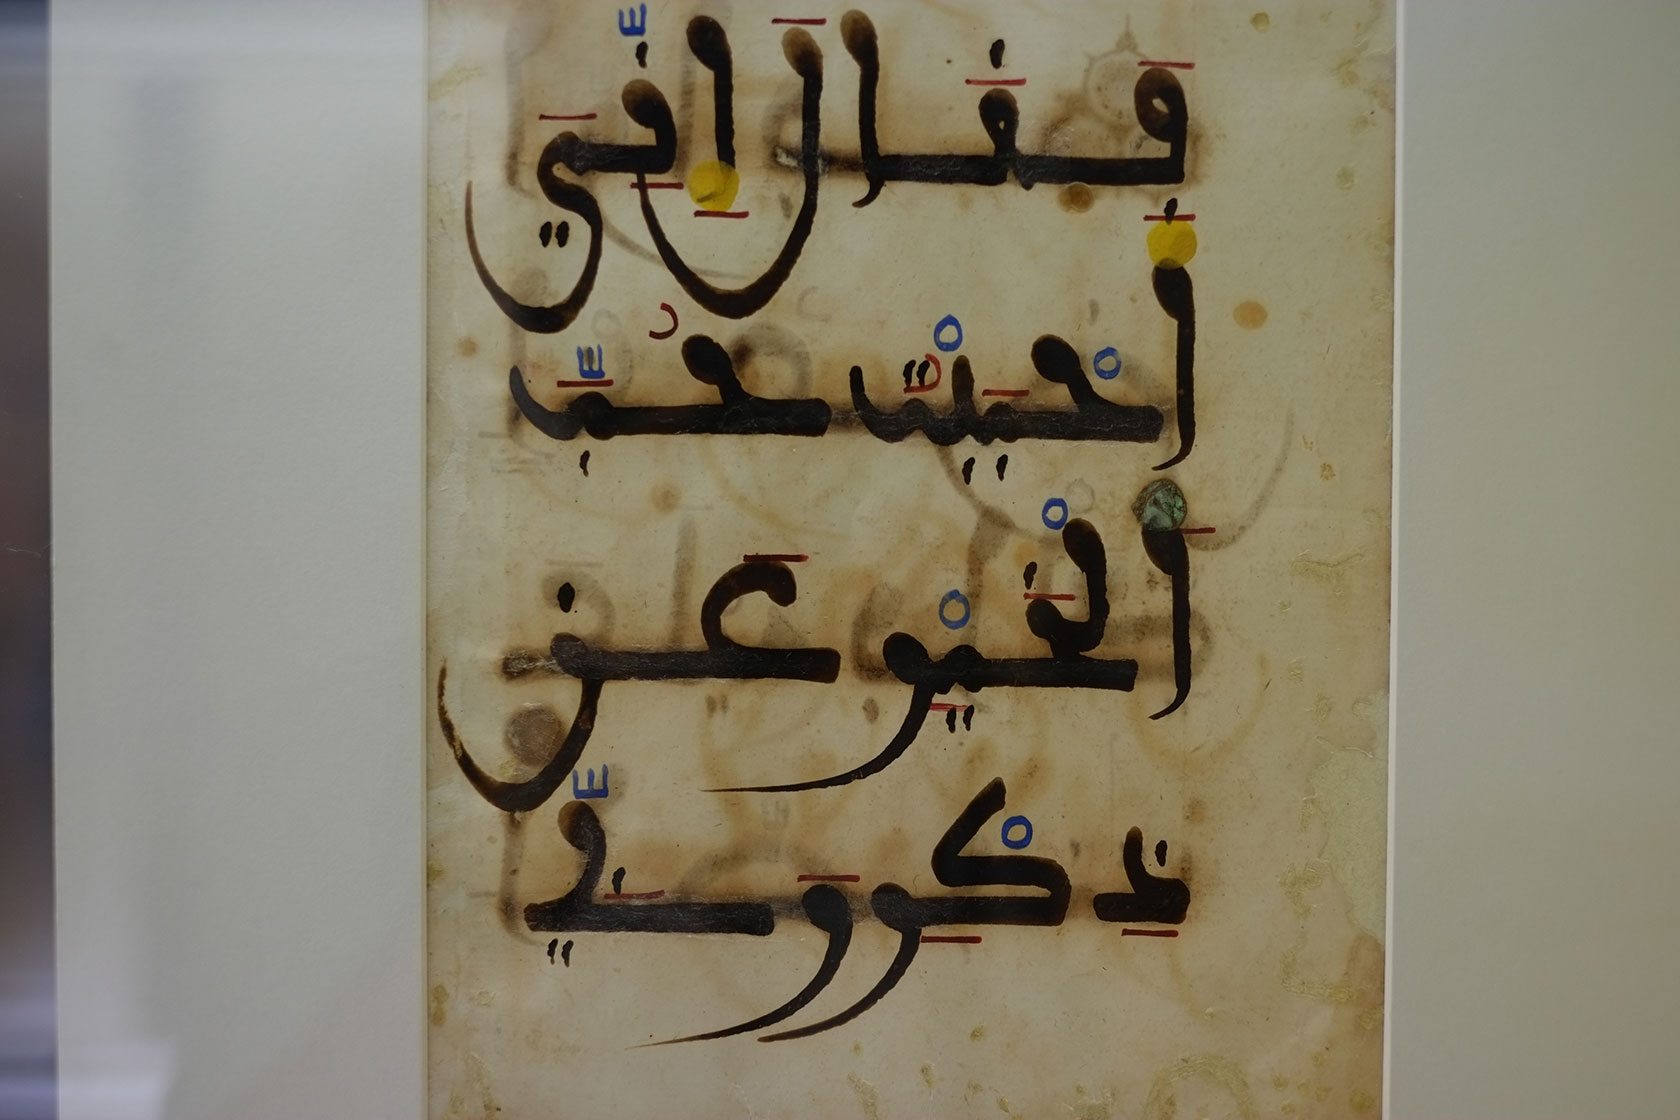 فَقَالَ إِنِّيَ
أَحْبَبْتُ حُبَّ
اَلْخَيْرِ عَن
ذِكْرِ رَبِّي